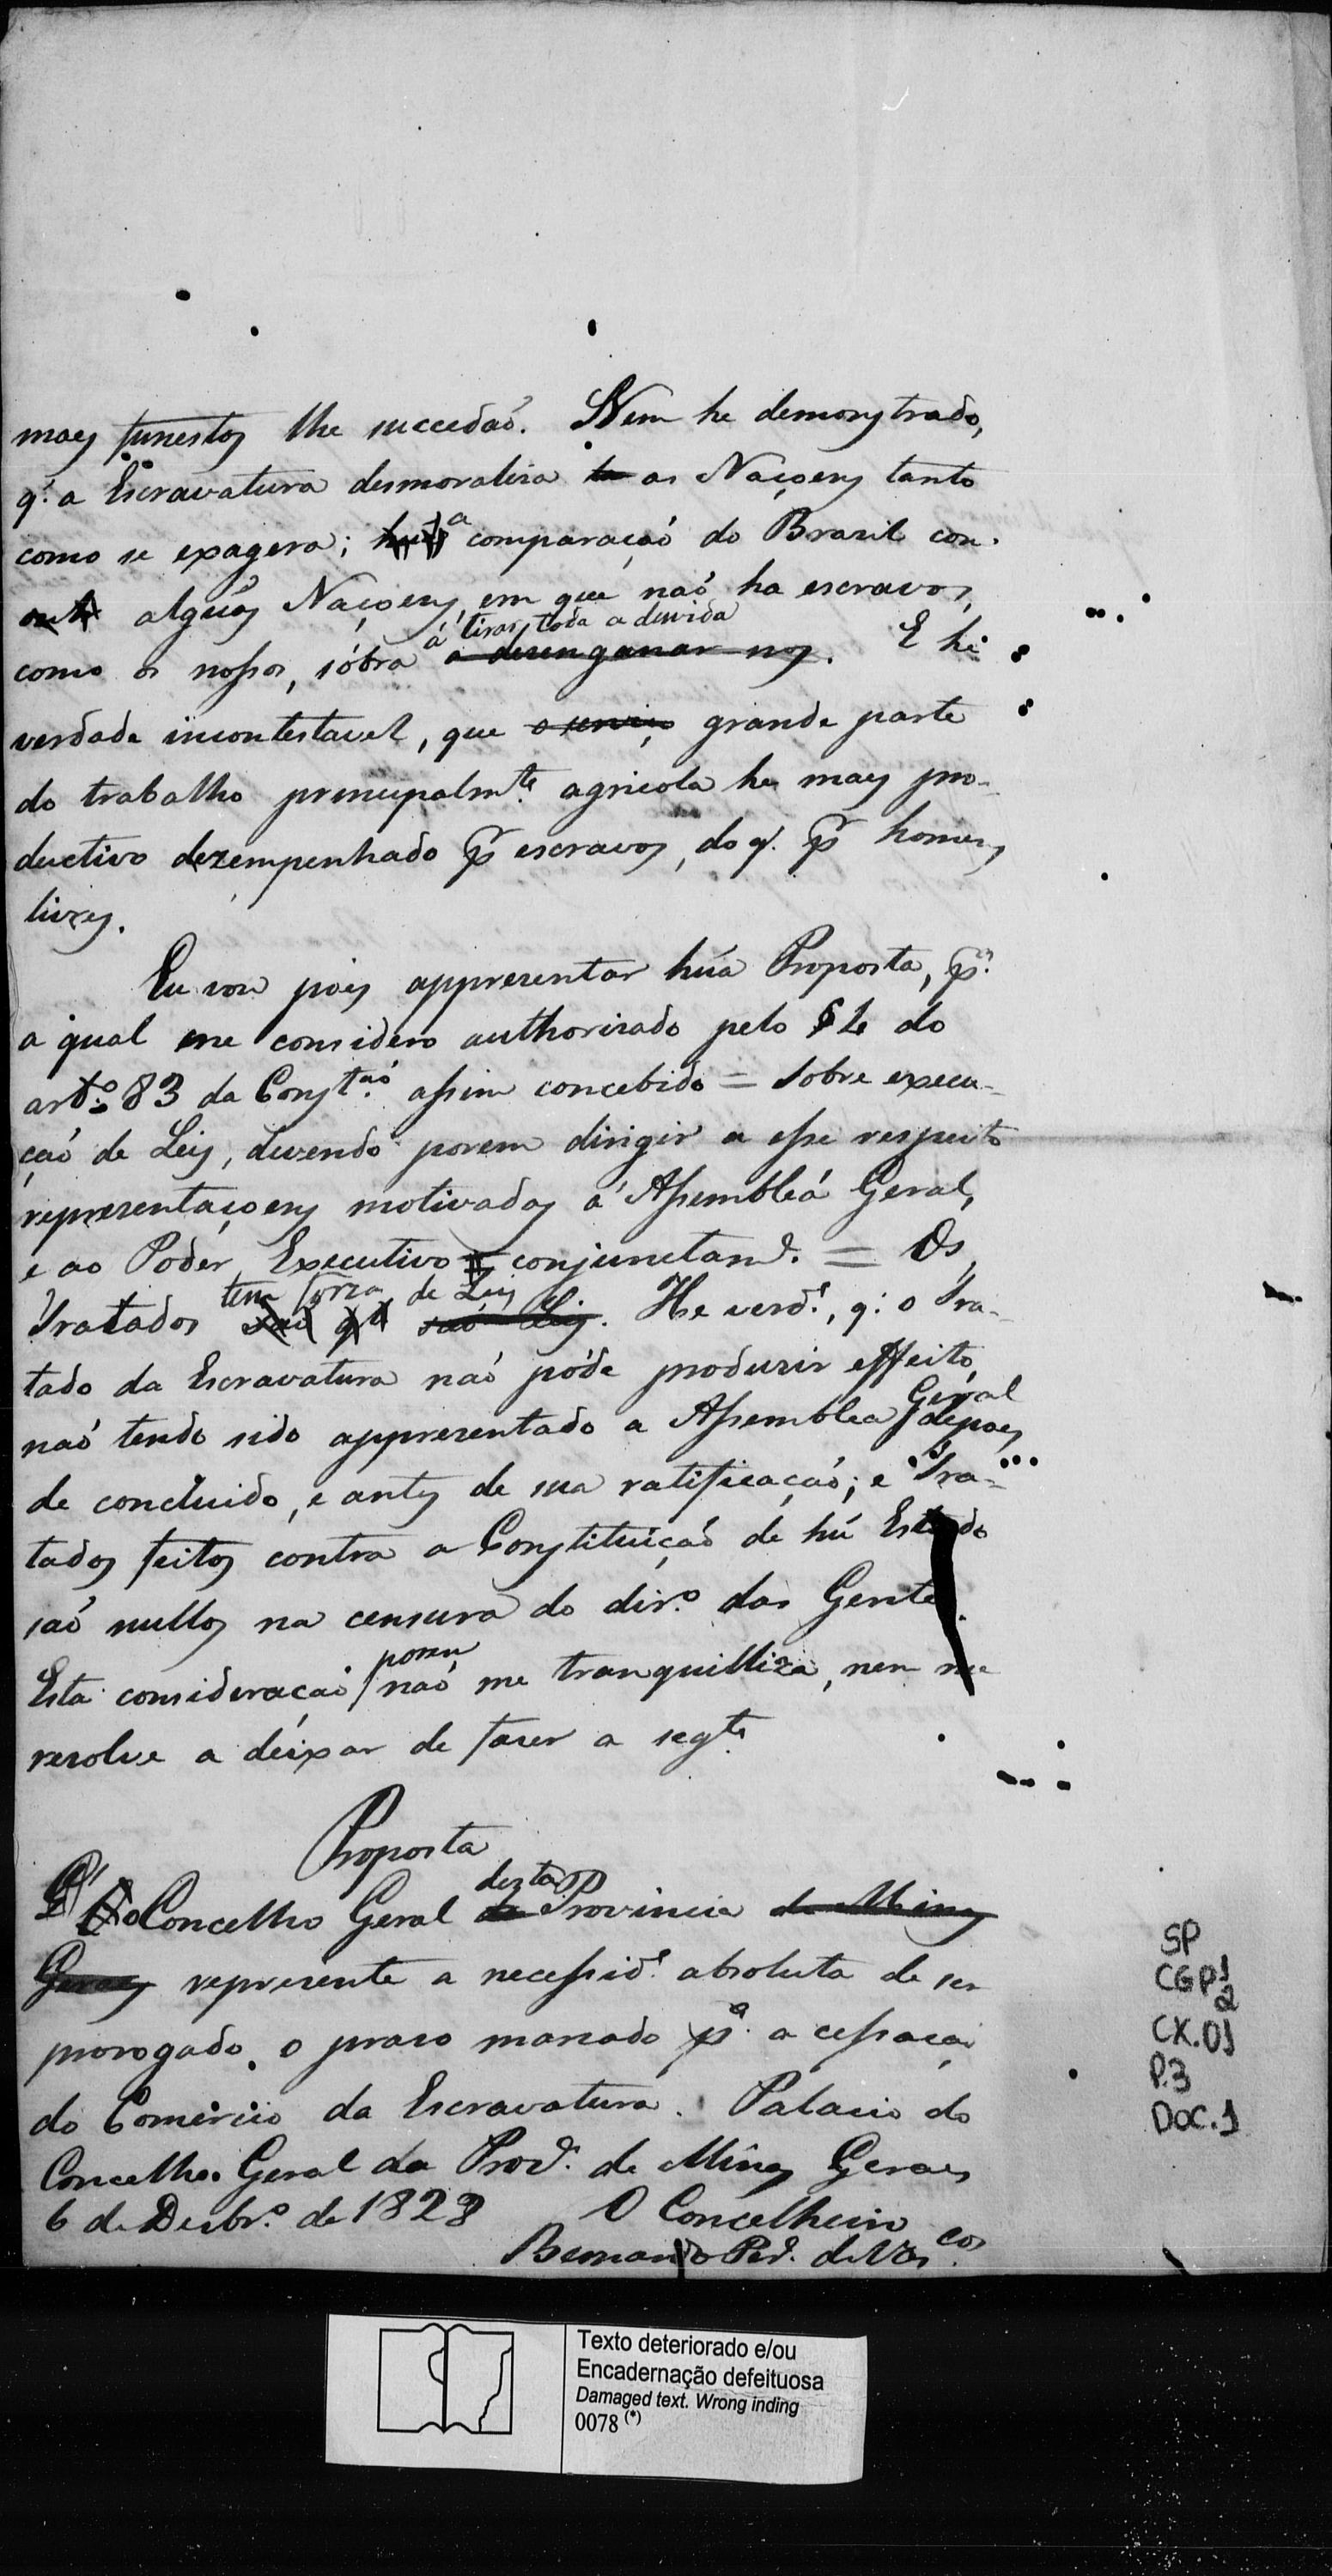 maes funestos lhe succedaõ. Nem he demonstrado,
q.' a Escravatura desmoralisa as Naçoens tanto
como se exagera; a comparaçaõ do Brasil con.
algũas Naçoens, em que naõ ha escravos,
á tirar toda a duvida
como os nossos, sóbra a desenganar-nos. E he
verdade incontestavel, que o serviço grande parte
do trabalho principalm.te agricola he mais pro-
ductivo dezempenhado p.r escravos, do q.' p.r homens
livres.
Eu vou pois appresentar hũa Proposta, p.a
a qual me considero authorisado pelo § 4 do
art.o 83 da Const.aõ assim concebido = sobre execu-
çaõ de Leis, devendo porem dirigir a esse respeito
representaçoens motivadas á Assembleá Geral,
e ao Poder Executivo conjunctam.e = Os
tem força de Leis
Tratados saõ Leis. He verd.e, q.' o Tra-
tado da Escravatura naõ póde produsir effeito,
Geral
naõ tendo sido appresentado a Assemblea depoes
de concluido, e antes de sua ratificaçaõ; e Tra-
tados feitos contra a Constituiçaõ de hũ Estado
saõ nullos na censura do dir.o das Gentes.
porem
Esta consideraçaõ naõ me tranquilliza, nem me
resolve a deixar de faser a seg.te
Proposta
desta
O Concelho Geral da Provincia de Minas
Geraes represente a necessid.e absoluta de ser
prorogado o praso marcado p.a a cessaçaõ
do Comercio da Escravatura. Palacio do
Concelho Geral da Prov.a de Minas Geraes
6 de Desbr.o de 1828 O Concelheiro
Bernardo Per.a de Vas.cos
SP
CGP1
2
CX.01
P.3
DOC.1
Texto deteriorado e/ou
Encadernação defeituosa
Damaged text. Wrong inding
0078 (*)